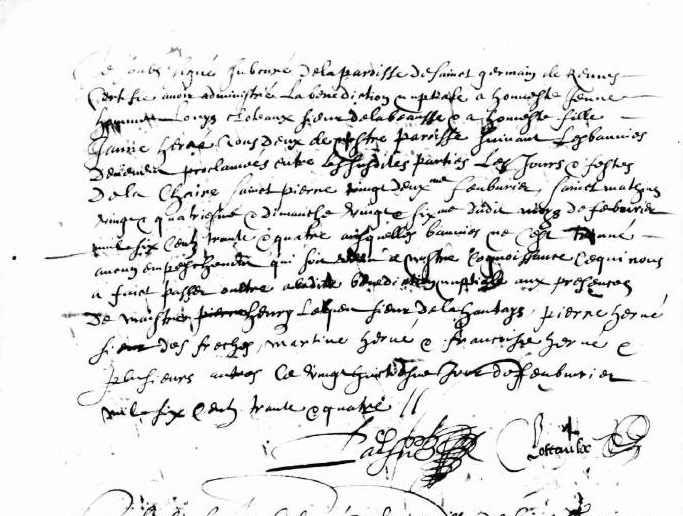 Je soubs signé subcuré de la paroisse de sainct germain de Rennes
Certifie avoir administré la bénédiction nuptialle a honneste Jeune
homme Louys Coteaux sieur de la beausse & a honneste fille
Janne hervé tous deux de nostre paroisse suivant les bannies
deuement proclamées entre les susdites parties les Jours & festes
de la Chaire sainct pierre vingt deuxme feuburier, sainct mathias
vingt & quatriesme & dimanche vingt & sixme dudit mois de febvrier
mil six cents trante & quatre ausquelles bannies ne s'est trouvé
aucun empeschement qui soit a nostre cognoissance Ce qui nous
a faict passer oultre a ladite bénédiction nuptialle aux présences
de maistre henry sieur de la hautays, pierre hervé
sieur des freches, martine hervé & francoise hervé &
plusieurs autres Ce vingt huictiesme Jour de feuburier
mil six cents trante & quatre